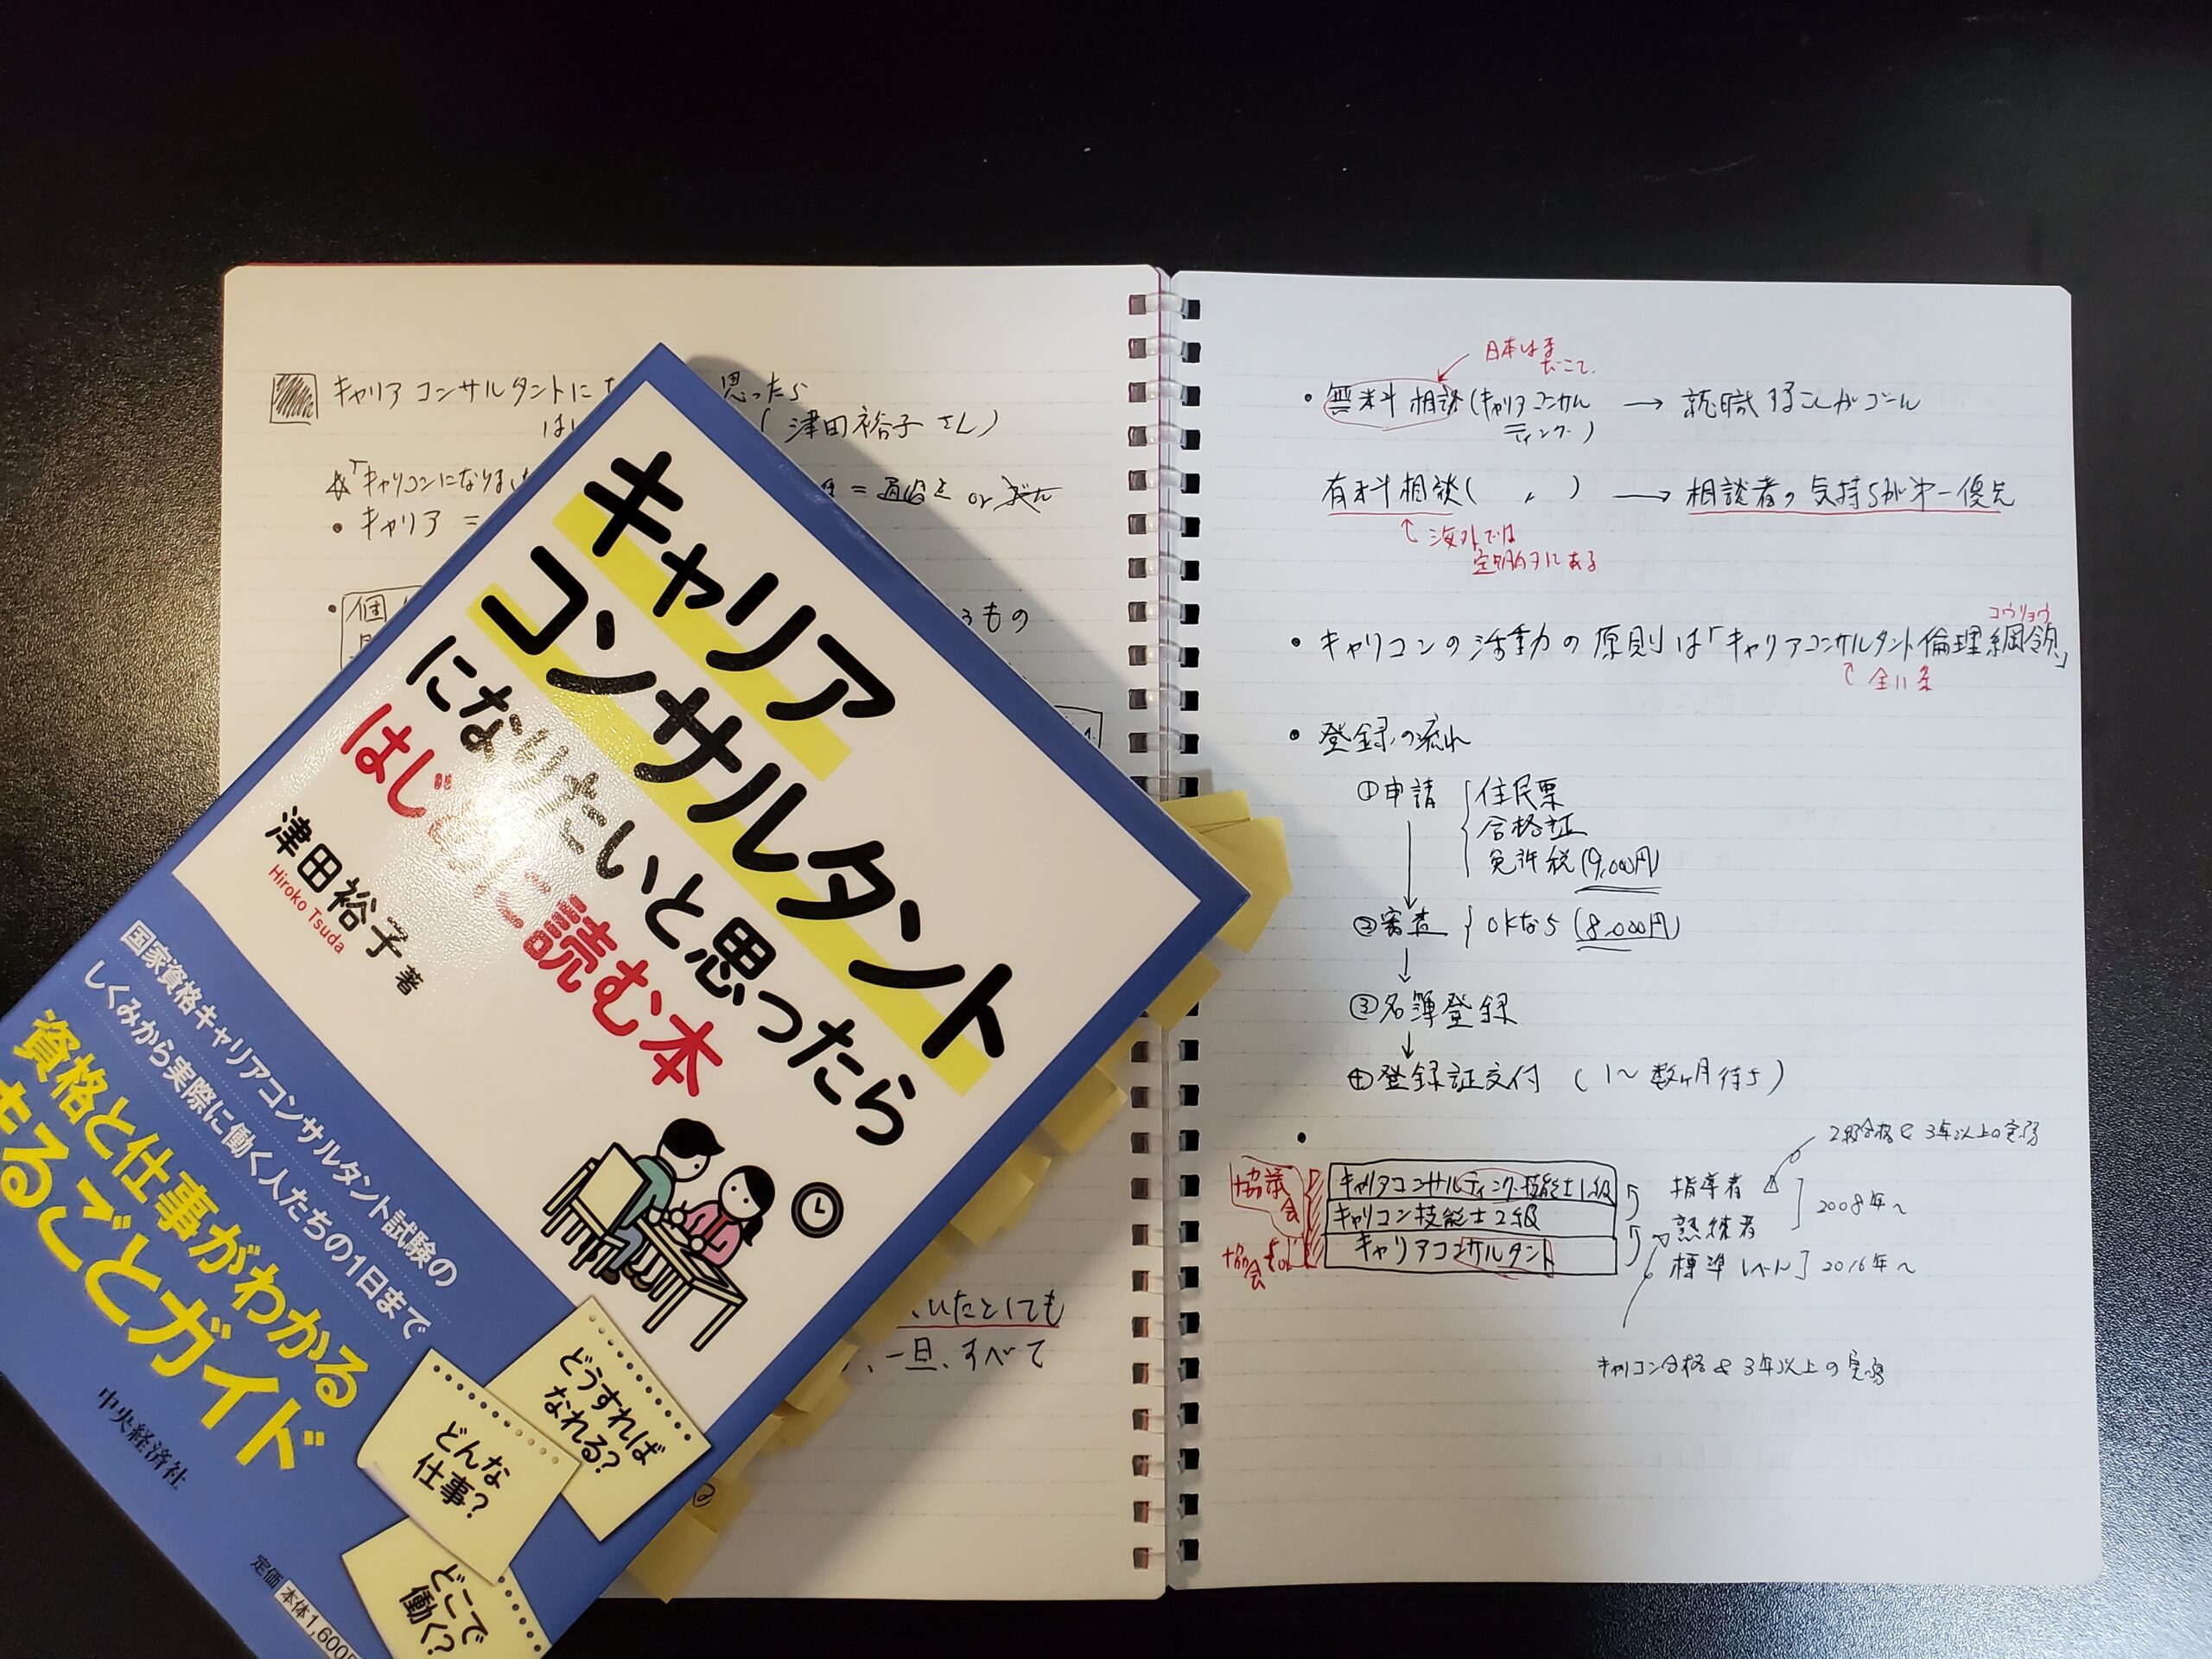 キャリアコンサルタントに
思ったら
はじ
(津田裕子さん)
「キャリコンになりました
= 通過点 or
・キャリア =
・個
るもの
いたとしても
、一旦、すべて
キャリア
コンサルタント
になりたいと思ったら
はじめに読む本
津田裕子 著
Hiroko Tsuda
国家資格キャリアコンサルタント試験の
しくみから実際に働く人たちの1日まで
資格と仕事がわかる
まるごとガイド
中央経済社
どうすれば
なれる?
どんな
仕事?
どこで
働く?
定価 本体1,600円
日本はま
だここ。
・無料相談(キャリアコンサル
ティング) → 就職することがゴール
有料相談( 〃 ) → 相談者の気持ちが第一優先
海外では
定期的にある
コウリョウ
・キャリコンの活動の原則は「キャリアコンサルタント倫理綱領」
全11条
・登録の流れ
①申請 住民票
合格証
免許税(9,000円)
↓
②審査 OKなら(8,000円)
↓
③名簿登録
↓
④登録証交付 (1〜数ヶ月待ち)
2級合格 & 3年以上の実務
・
協議会
キャリアコンサルティング技能士1級 指導者
キャリコン技能士2級 熟練者 2008年〜
協会
キャリアコンサルタント 標準レベル 2016年〜
キャリコン合格 & 3年以上の実務